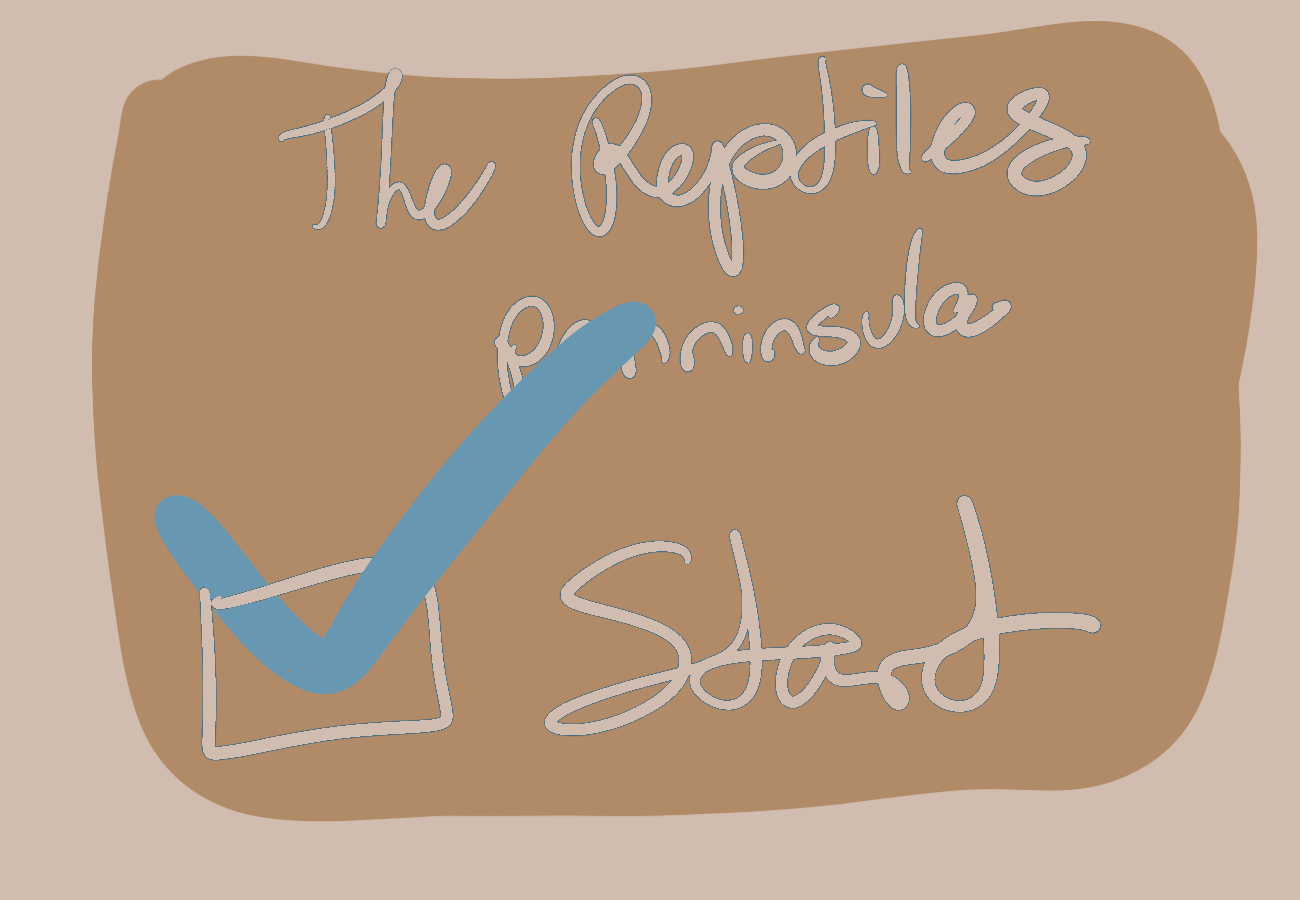 The Reptiles
Penninsula
Start